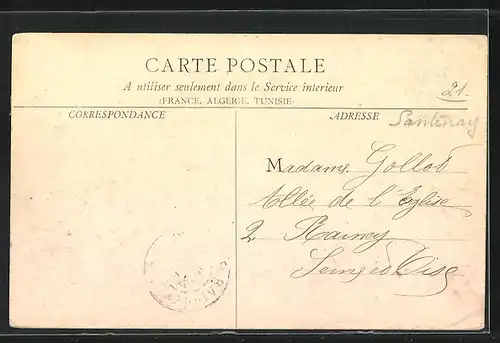 CARTE POSTALE
A utiliser seulement dans le Service intérieur
(FRANCE, ALGERIE, TUNISIE)
21
CORRESPONDANCE
ADRESSE
Santenay
Madame Gollod
Allée de l'Eglise
2. Raincy
Seine et Oise